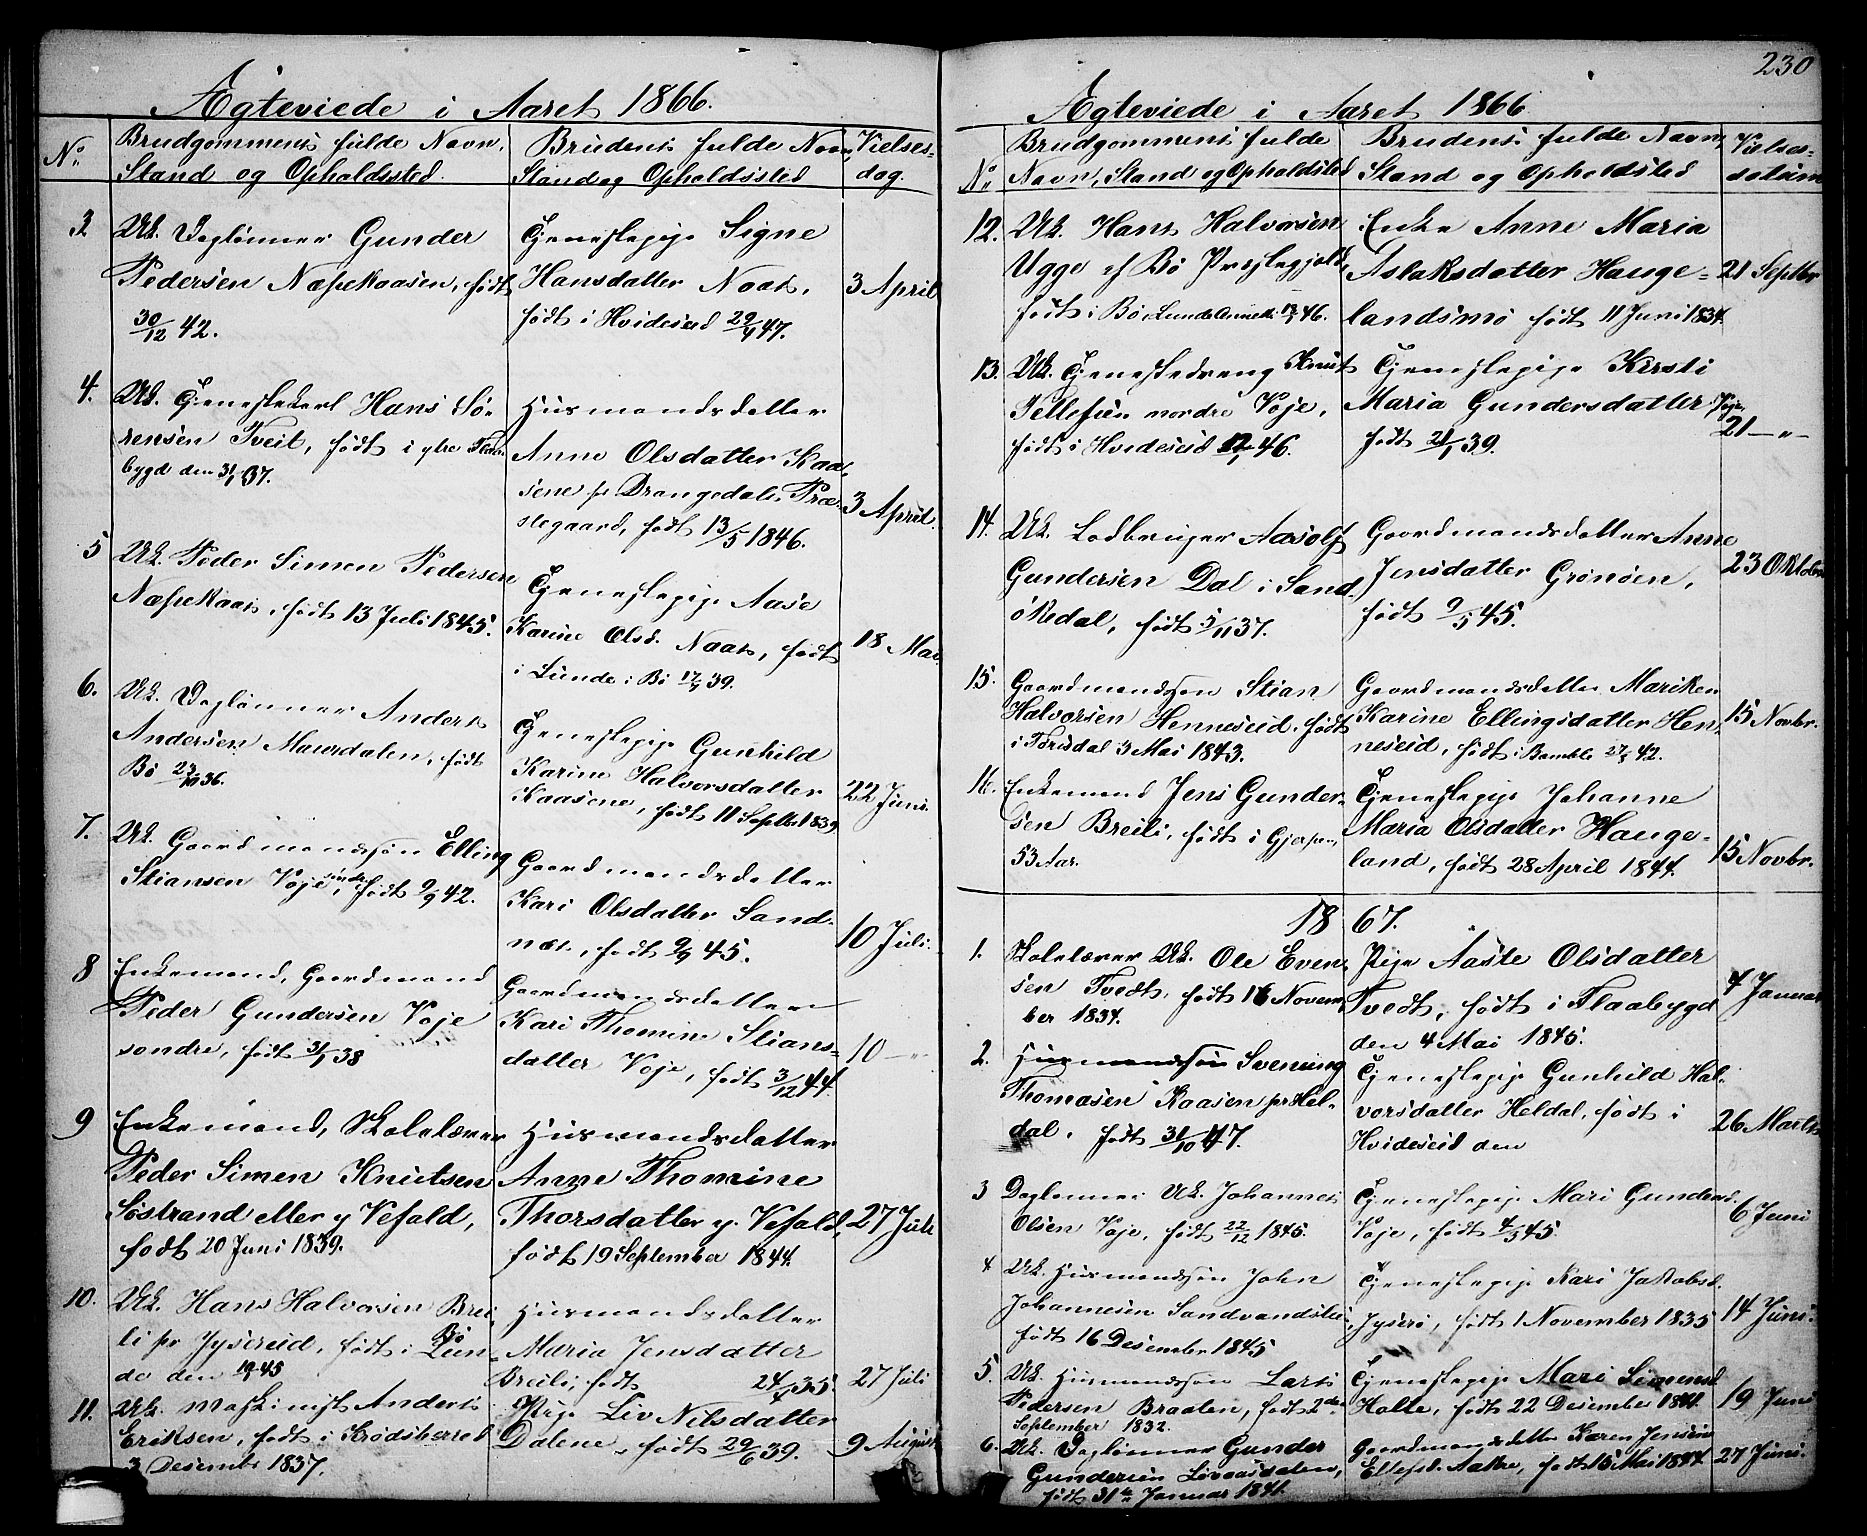 230
Ægteviede i Aaret 1866.
No. Brudgommens fulde Navn, Brudens fulde Navn Vielses-
Stand og Opholdssted. Stand og Opholdssted dag.
3 Uk. Daglønner Gunder
Pedersen Næpekaasen, født
30/12 42.
Tjenestepige Signe
Hansdatter Naas,
født i Hvideseid 47.
3 April
4. Uk. Tjenestekarl Hans Sø-
rensen Tveit, født i ytre
bygd den 37.
Husmandsdatter
Anne Olsdatter Kaa-
sene pr Drangedals Præ-
stegaard, født 13/5 1846.
3 April.
5 Uk. Peder Simon Pedersen
Næpekaas, født 13 Juli 1845.
Tjenestepige Aase
Karine Olsd. Naas, født
i Lunde i Bø 39.
18 Mai
6. Uk. Daglønner Anders
Andersen Maursdalen, født
Bø 36.
Tjenestepige Gunhild
Karine Halvorsdatter
Kaasene, født 11 Septbr 1839
22 Juni.
7. Uk. Gaardmandssøn Elling
Stiansen Voje søndre, født 9/9 42.
Gaardmandsdatter
Kari Olsdatter Sand-
næs, født 45.
10 Juli.
8 Enkemand, Gaardmand
Peder Gundersen Voje
søndre, født 38
Gaardmandsdatter
Kari Thomine Stians-
datter Voje, født 3/12 44.
10 — „
9 Enkemand, Skolelærer
Peder Simen Knutsen
Søstrand eller y Vefald,
født 20 Juni 1839.
Husmandsdatter
Anne Thomine
Thorsdatter y. Vefald,
født 19 September 1844.
27 Juli
10. Uk. Hans Halvorsen Brei-
li pr Jysereid, født i Bø Lun-
de den 45
Husmandsdatter
Maria Jensdatter
Breili, født 35.
27 Juli
11. Uk. Maskinist Anders
Eriksen, født i Krødsherred
3 Desembr 1837.
Pige Liv Nilsdatter
Dalene, født 29/6 39.
9 August
Ægteviede i Aaret 1866
No. Brudgommens fulde Brudens fulde Navn, Vielses-
Navn, Stand og Opholdsted Stand og Opholdsted datum
12. Uk. Hans Halvorsen
Ugge af Bø Præstegjeld
født i Bø, Lunde Annex 46.
Enke Anne Maria
Aslaksdatter Hauge-
landsmo født 11 Juni 1834.
21 Septbr
13. Uk. Tjenestedreng Knut
Tellefsen nordre Voje,
født i Hvideseid 46.
Tjenestepige Kirsti
Maria Gundersdatter Voje,
født 21/1 39.
21 — „ —
14. Uk. Lodbruger Aasolf
Gundersen Dal i Sand-
økedal, født 5/11 37.
Gaardmandsdatter Anne
Jensdatter Grønøen,
født 9/5 45.
23 Oktober
15. Gaardmandssøn Stian
Halvorsen Henneseid, født
i Tørisdal 3 Mai 1843.
Gaardmandsdatter Mariken
Karine Ellingsdatter Hen-
neseid, født i Bamble 42.
15 Novbr.
16. Enkemand Jens Gunder-
sen Breili, født i Gjerpen,
53 Aar.
Tjenestepige Johanne
Maria Olsdatter Hauge-
land, født 28 April 1844.
15 Novbr.
1867.
1. Skolelærer Uk. Ole Even-
sen Tvedt, født 16 Novem-
ber 1834.
Pige Aaste Olsdatter
Tvedt, født i Flaabygd
den 4 Mai 1845.
4 Januar
2. Husmandssøn Svenning
Thomasen Kaasen pr Hel-
dal, født 31/10 47.
Tjenestepige Gunhild Hal-
vorsdatter Heldal, født i
Hvideseid den
26 Marts
3 Daglønner Uk. Johannes
Olsen Voje, født 22/12 1845.
Tjenestepige Mari Gundersd.
Voje, født 45.
6 Juni
4 Uk. Husmandssøn John
Johannesen Sandvandslie
født 16 Desember 1845
Tjenestepige Kari Jakobsd.
Jyserø, født 1 November 1835
14 Juni.
5. Uk. Husmandssøn Lars
Pedersen Braaten, født 2den
September 1832.
Tjenestepige Mari Simensd
Holte, født 22 Desember 1841.
19 Juni
6. Uk. Daglønner Gunder
Gundersen Løvaasdalen,
født 31te Januar 1841.
Gaardmandsdatter Karen Jensine
Ellefsd. Aakre, født 15 Mai 1844.
27 Juni.